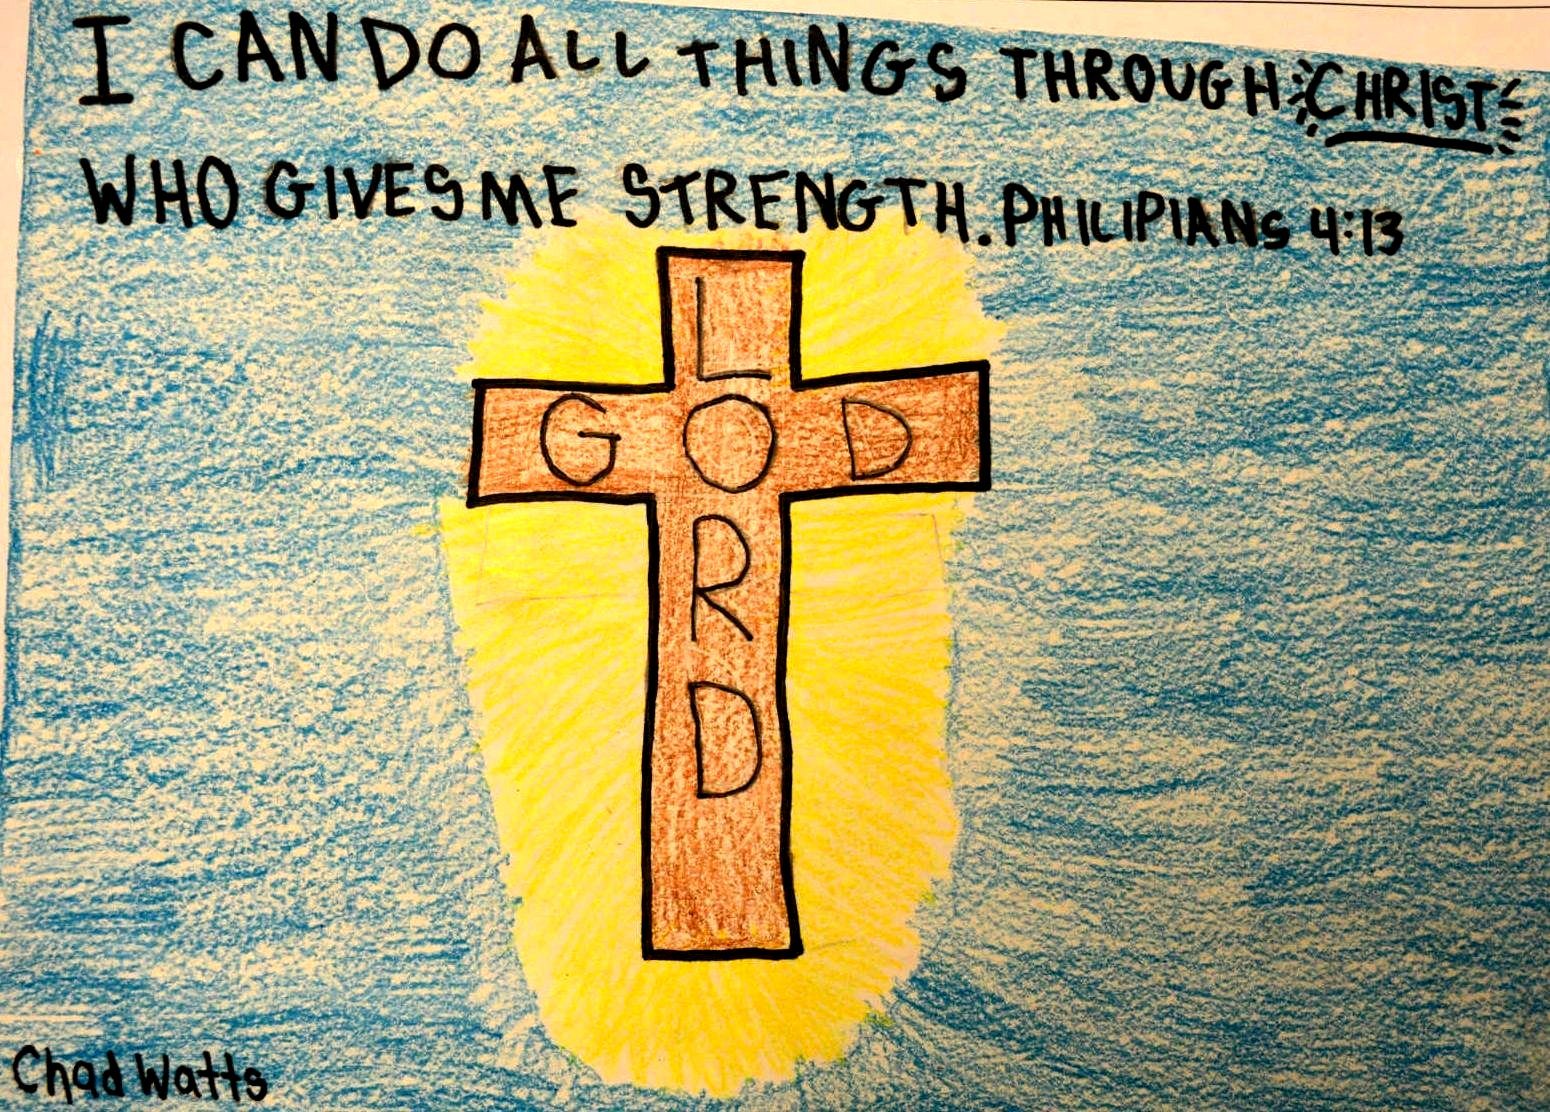 I CAN DO ALL THINGS THROUGH CHRIST
WHO GIVES ME STRENGTH. PHILIPIANS 4:13
L
GOD
R
D
Chad Watts